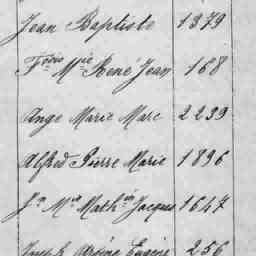 Jean Baptiste 1379
F.çois M.ie René Jean 168
Ange Marie Marc 2239
Alfred Pierre Marie 1896
J.n M.ie Math.in Jacques 1647
Joseph Eugène 256